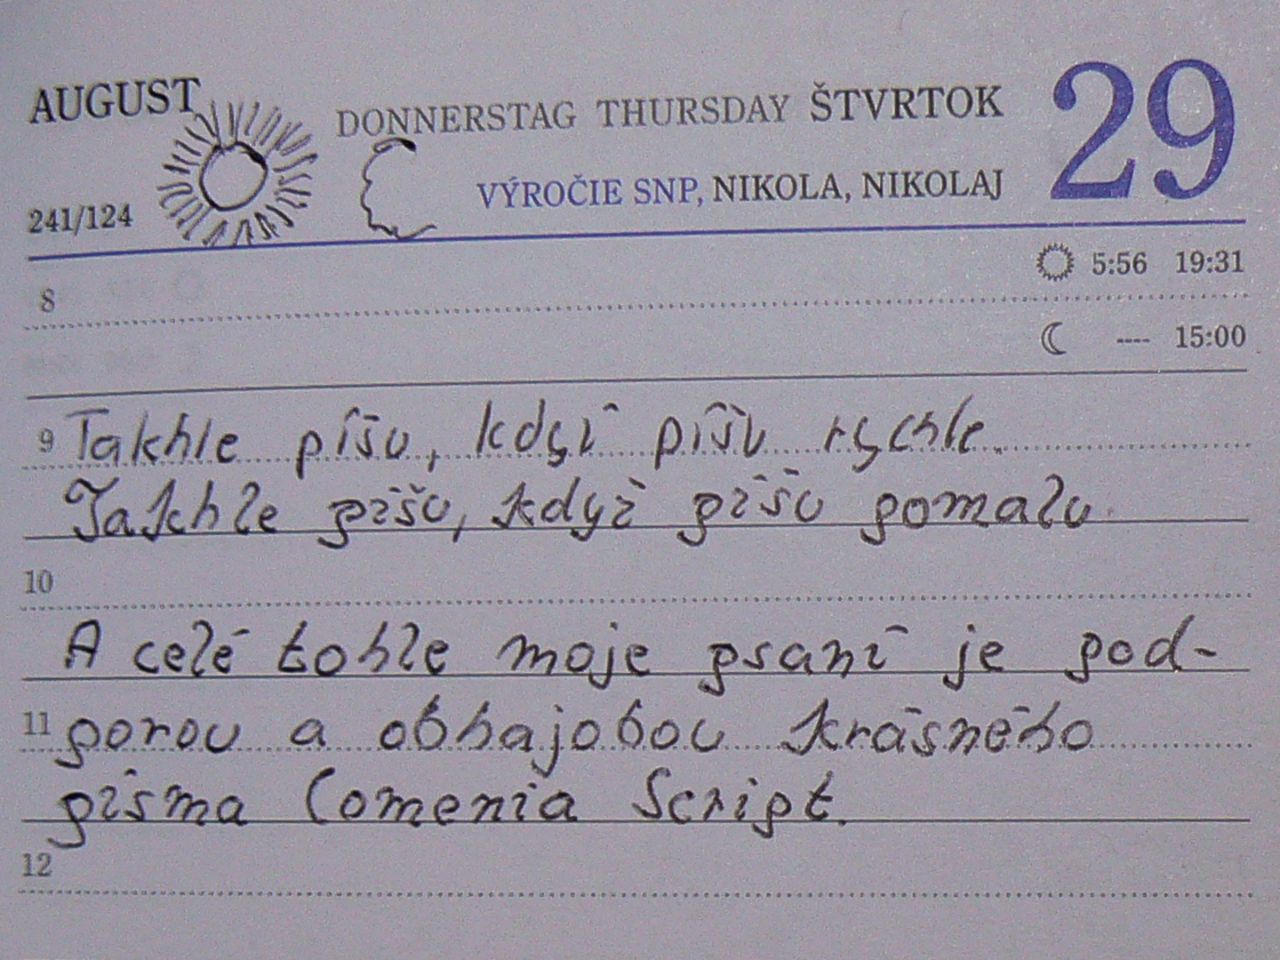 AUGUST DONNERSTAG THURSDAY ŠTVRTOK 29
241/124 VÝROČIE SNP, NIKOLA, NIKOLAJ
8 5:56 19:31
---- 15:00
9 Takhle píšu, když píšu rychle.
Takhle píšu, když píšu pomalu.
10
A celé tohle moje psaní je pod-
11 porou a obhajobou krásného
písma Comenia Script.
12